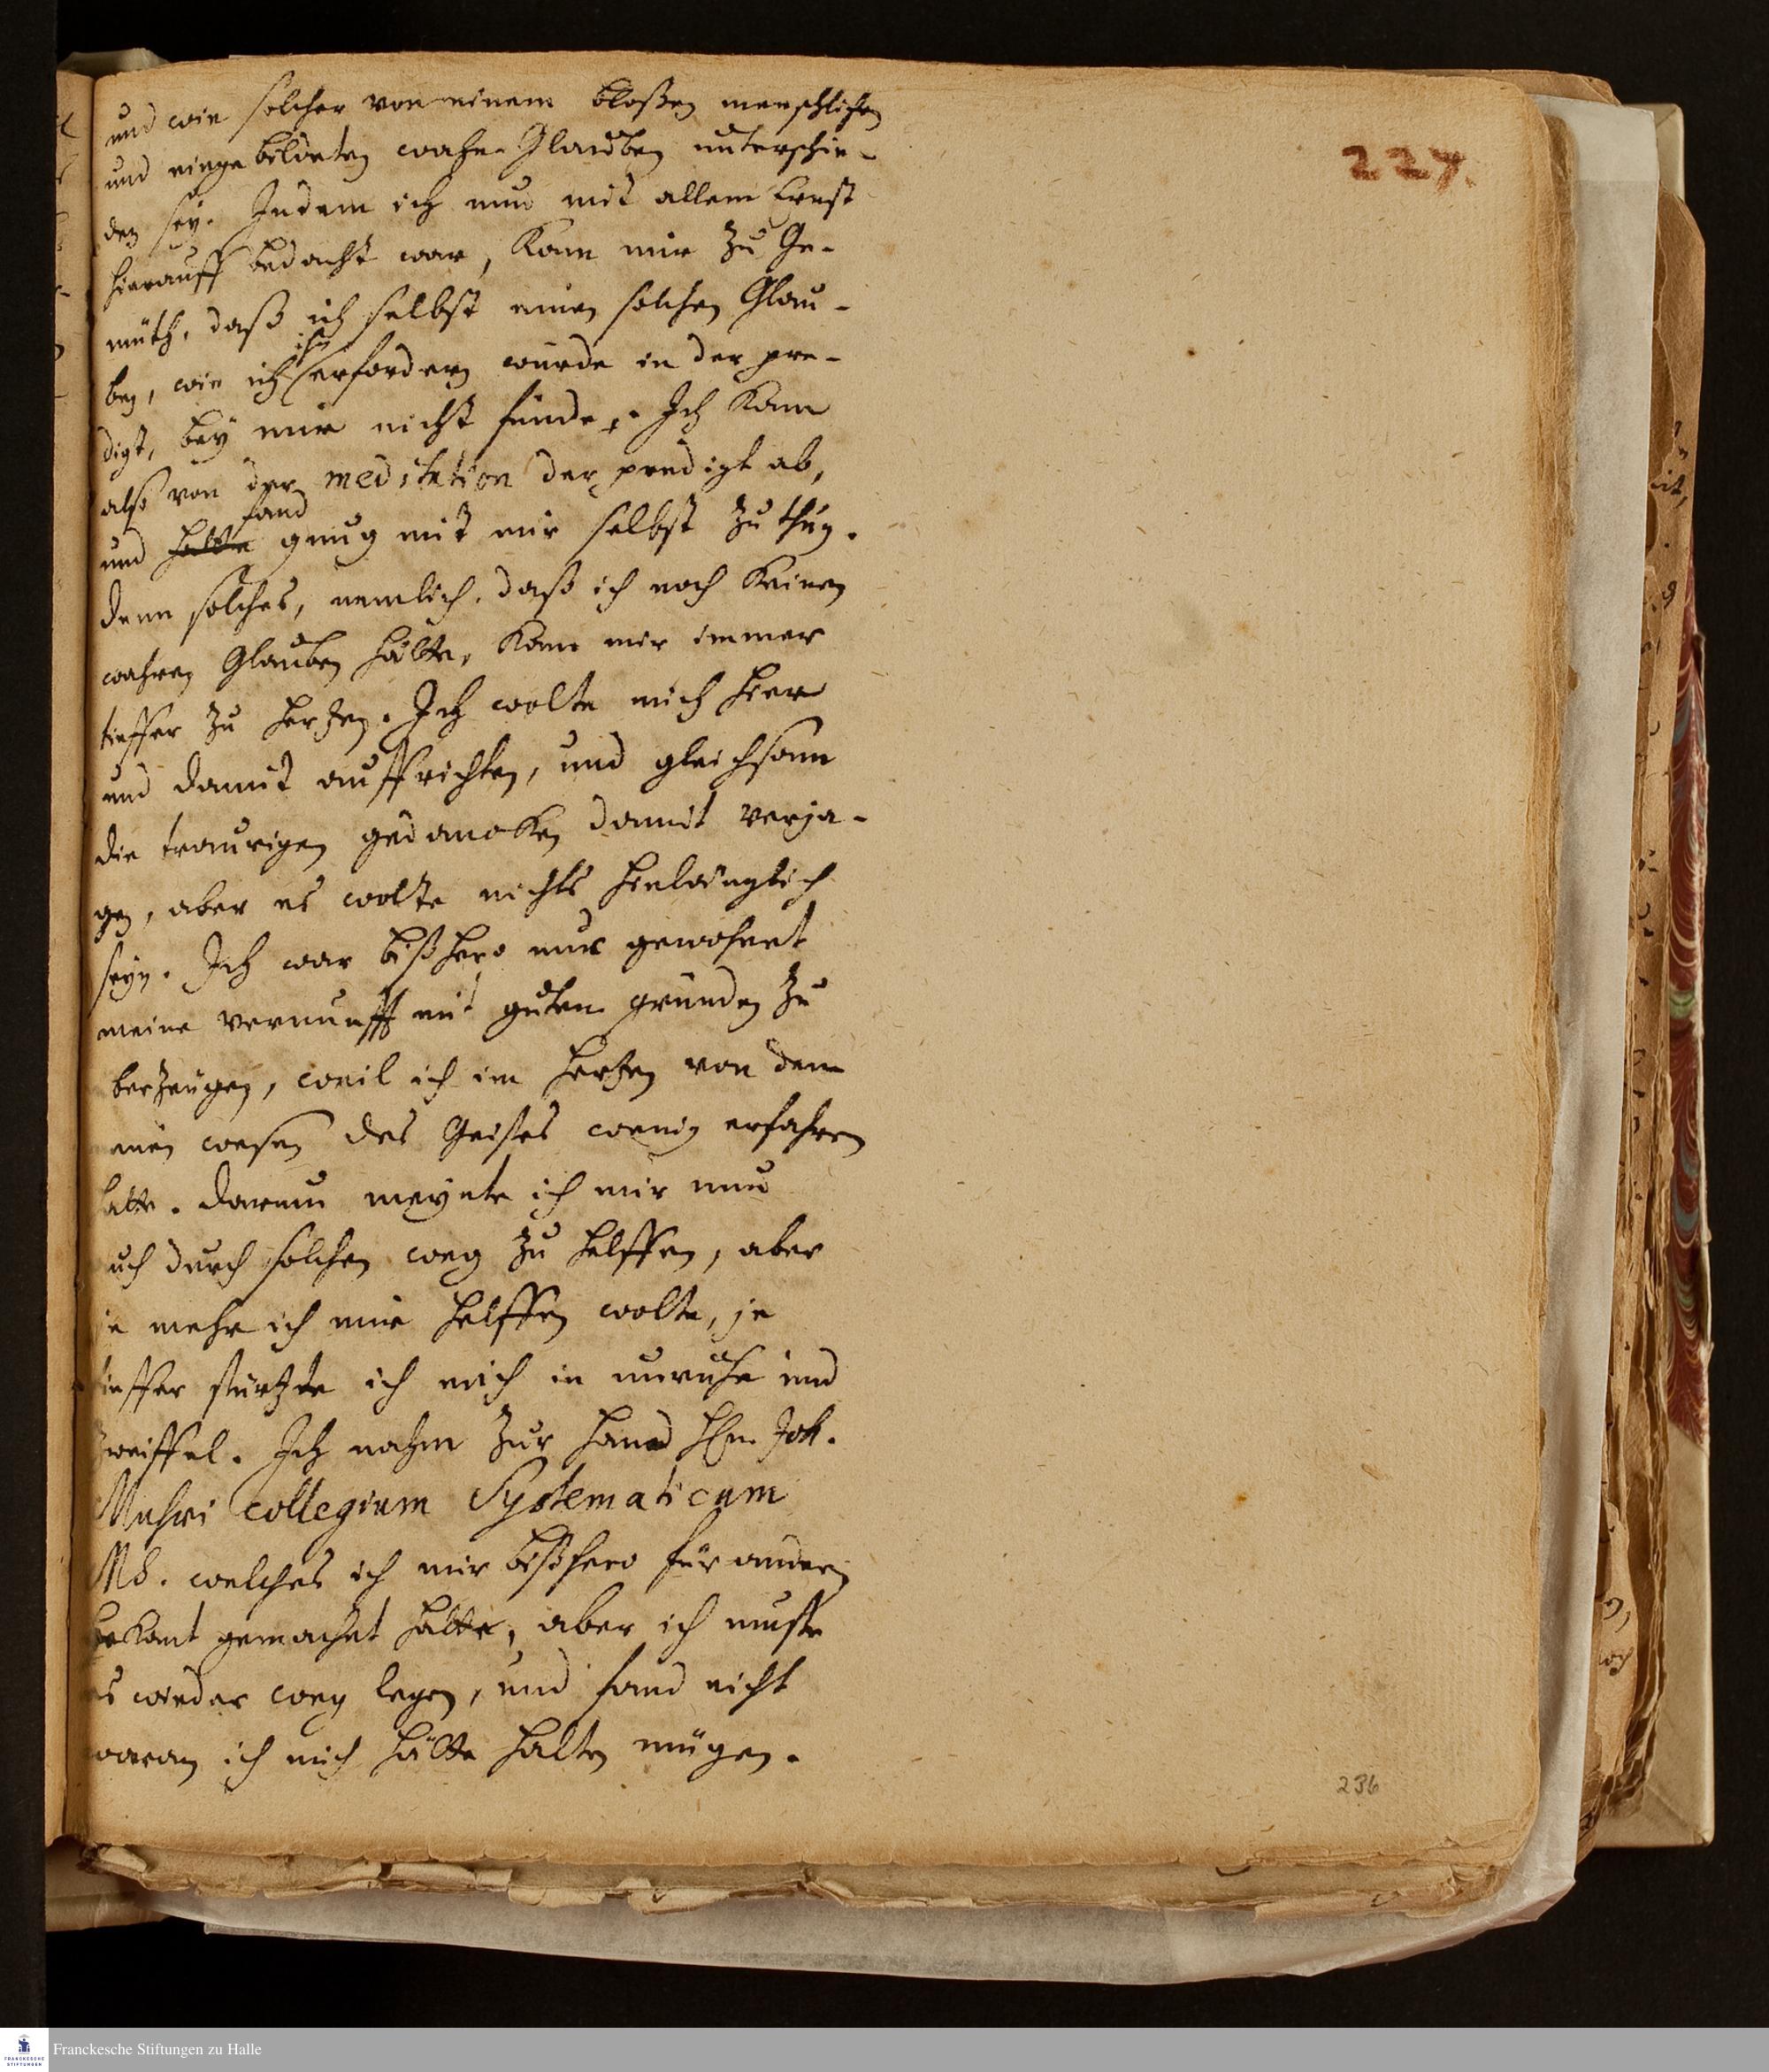 227.
und wie solcher von einem bloßen menschlichen
und eingebildeten wahn-Glauben unterschie-
den sey. Indem ich nun mit allem Ernst
hierauff bedacht war, kam mir zu Ge-
müth, daß ich selbst einen solchen Glau-
ben, wie ich ihn erfordern würde in der pre-
digt, bey mir nicht fünde. Ich kam
also von der meditation der predigt ab,
und hatte fand gnug mit mir selbst zu thun.
denn solches, nemlich, daß ich noch keinen
wahren Glauben hätte, kam mir immer
tieffer zu hertzen. Ich wolte mich hier
und damit auffrichten, und gleichsam
die traurigen gedancken damit verja-
gen, aber es wolte nichts hinlänglich
seyn. Ich war bißhero nur gewohnet
meine vernunfft mit guten gründen zu
berzeugen, weil ich im hertzen von dem
wesen des Geistes wenig erfahren
hatte. darum meynte ich mir nun
auch durch solchen weg zu helffen, aber
je mehr ich mir helffen wolte, je
tieffer stürtzte ich mich in unruhe und
zweiffel. Ich nahm zur hand Hn. Joh.
Musæi collegium Systematicum
MS. welches ich mir bißhero für andern
bekant gemachet hatte, aber ich muste
es wieder weg legen, und fand nicht
woran ich mich hätte halten mügen.
236
Franckesche Stiftungen zu Halle